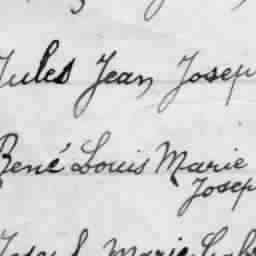 Jules Jean Josep
René Louis Marie
Josep
Marie